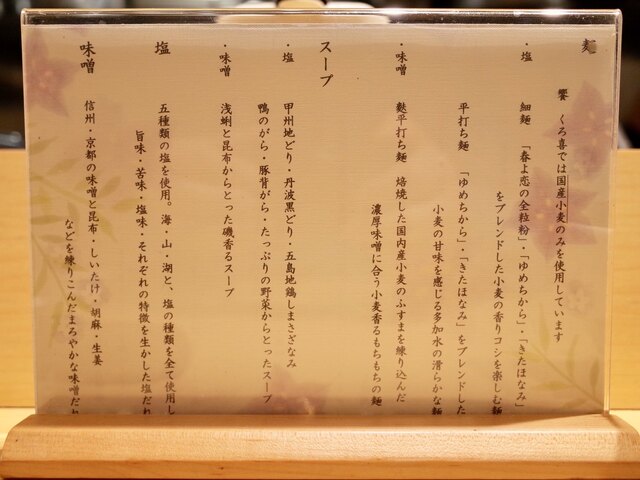 麺
饗 くろ喜では国産小麦のみを使用しています
・塩 細麺 「春よ恋の全粒粉」・「ゆめちから」・「きたほなみ」
をブレンドした小麦の香りコシを楽しむ麺
平打ち麺 「ゆめちから」・「きたほなみ」をブレンドした
小麦の甘味を感じる多加水の滑らかな麺
・味噌 麩平打ち麺 焙焼した国内産小麦のふすまを練り込んだ
濃厚味噌に合う小麦香るもちもちの麺
スープ
・塩 甲州地どり・丹波黒どり・五島地鶏しまさざなみ
鴨のがら・豚背がら・たっぷりの野菜からとったスープ
・味噌 浅蜊と昆布からとった磯香るスープ
塩 五種類の塩を使用。海・山・湖と、塩の種類を全て使用し
旨味・苦味・塩味・それぞれの特徴を生かした塩だれ
味噌 信州・京都の味噌と昆布・しいたけ・胡麻・生姜
などを練りこんだまろやかな味噌だれ